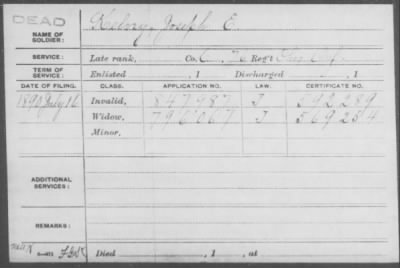 DEAD
NAME OF SOLDIER: Kelsey, Joseph E.
SERVICE: Late rank, Co. C, 76 Reg't Ohio Inf.
TERM OF SERVICE: Enlisted , 1 Discharged , 1
DATE OF FILING. CLASS. APPLICATION NO. LAW. CERTIFICATE NO.
1890 July 16 Invalid, 847787 J 592289
Widow, 796067 J 569254
Minor,
ADDITIONAL SERVICES:
REMARKS:
Died , 1 , at